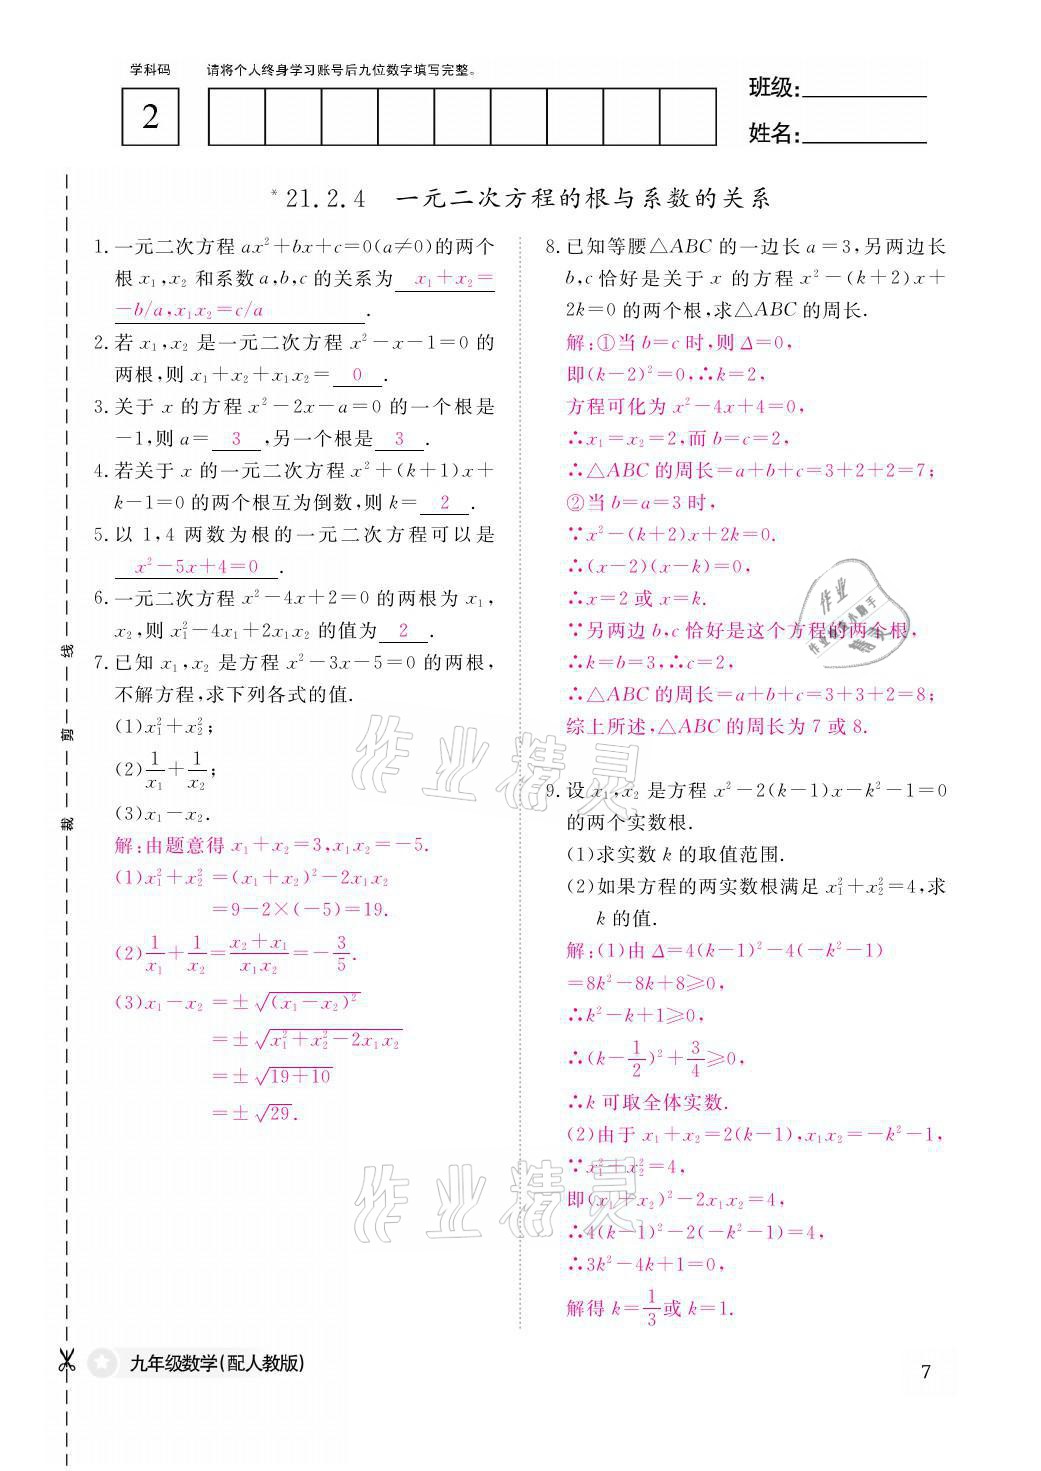 学科码
请将个人终身学习账号后九位数字填写完整。
2
班级:
姓名:
*21.2.4 一元二次方程的根与系数的关系
1.一元二次方程 ax²+bx+c=0(a≠0)的两个
根 x₁,x₂ 和系数 a,b,c 的关系为 x₁+x₂=
-b/a,x₁x₂=c/a .
2.若 x₁,x₂ 是一元二次方程 x²-x-1=0 的
两根,则 x₁+x₂+x₁x₂= 0 .
3.关于 x 的方程 x²-2x-a=0 的一个根是
-1,则 a= 3 ,另一个根是 3 .
4.若关于 x 的一元二次方程 x²+(k+1)x+
k-1=0 的两个根互为倒数,则 k= 2 .
5.以 1,4 两数为根的一元二次方程可以是
x²-5x+4=0 .
6.一元二次方程 x²-4x+2=0 的两根为 x₁,
x₂,则 x₁²-4x₁+2x₁x₂ 的值为 2 .
7.已知 x₁,x₂ 是方程 x²-3x-5=0 的两根,
不解方程,求下列各式的值.
(1)x₁²+x₂²;
(2)1/x₁+1/x₂;
(3)x₁-x₂.
解:由题意得 x₁+x₂=3,x₁x₂=-5.
(1)x₁²+x₂²=(x₁+x₂)²-2x₁x₂
=9-2×(-5)=19.
(2)1/x₁+1/x₂=(x₂+x₁)/(x₁x₂)=-3/5.
(3)x₁-x₂=±√(x₁-x₂)²
=±√x₁²+x₂²-2x₁x₂
=±√19+10
=±√29.
8.已知等腰△ABC 的一边长 a=3,另两边长
b,c 恰好是关于 x 的方程 x²-(k+2)x+
2k=0 的两个根,求△ABC 的周长.
解:①当 b=c 时,则 Δ=0,
即(k-2)²=0,∴k=2,
方程可化为 x²-4x+4=0,
∴x₁=x₂=2,而 b=c=2,
∴△ABC 的周长=a+b+c=3+2+2=7;
②当 b=a=3 时,
∵x²-(k+2)x+2k=0.
∴(x-2)(x-k)=0,
∴x=2 或 x=k.
∵另两边 b,c 恰好是这个方程的两个根,
∴k=b=3,∴c=2,
∴△ABC 的周长=a+b+c=3+3+2=8;
综上所述,△ABC 的周长为 7 或 8.
9.设 x₁,x₂ 是方程 x²-2(k-1)x-k²-1=0
的两个实数根.
(1)求实数 k 的取值范围.
(2)如果方程的两实数根满足 x₁²+x₂²=4,求
k 的值.
解:(1)由 Δ=4(k-1)²-4(-k²-1)
=8k²-8k+8≥0,
∴k²-k+1≥0,
∴(k-1/2)²+3/4≥0,
∴k 可取全体实数.
(2)由于 x₁+x₂=2(k-1),x₁x₂=-k²-1,
∵x₁²+x₂²=4,
即(x₁+x₂)²-2x₁x₂=4,
∴4(k-1)²-2(-k²-1)=4,
∴3k²-4k+1=0,
解得 k=1/3或 k=1.
线
剪
裁
作业精灵
作业精灵
作业
九年级数学(配人教版)
7